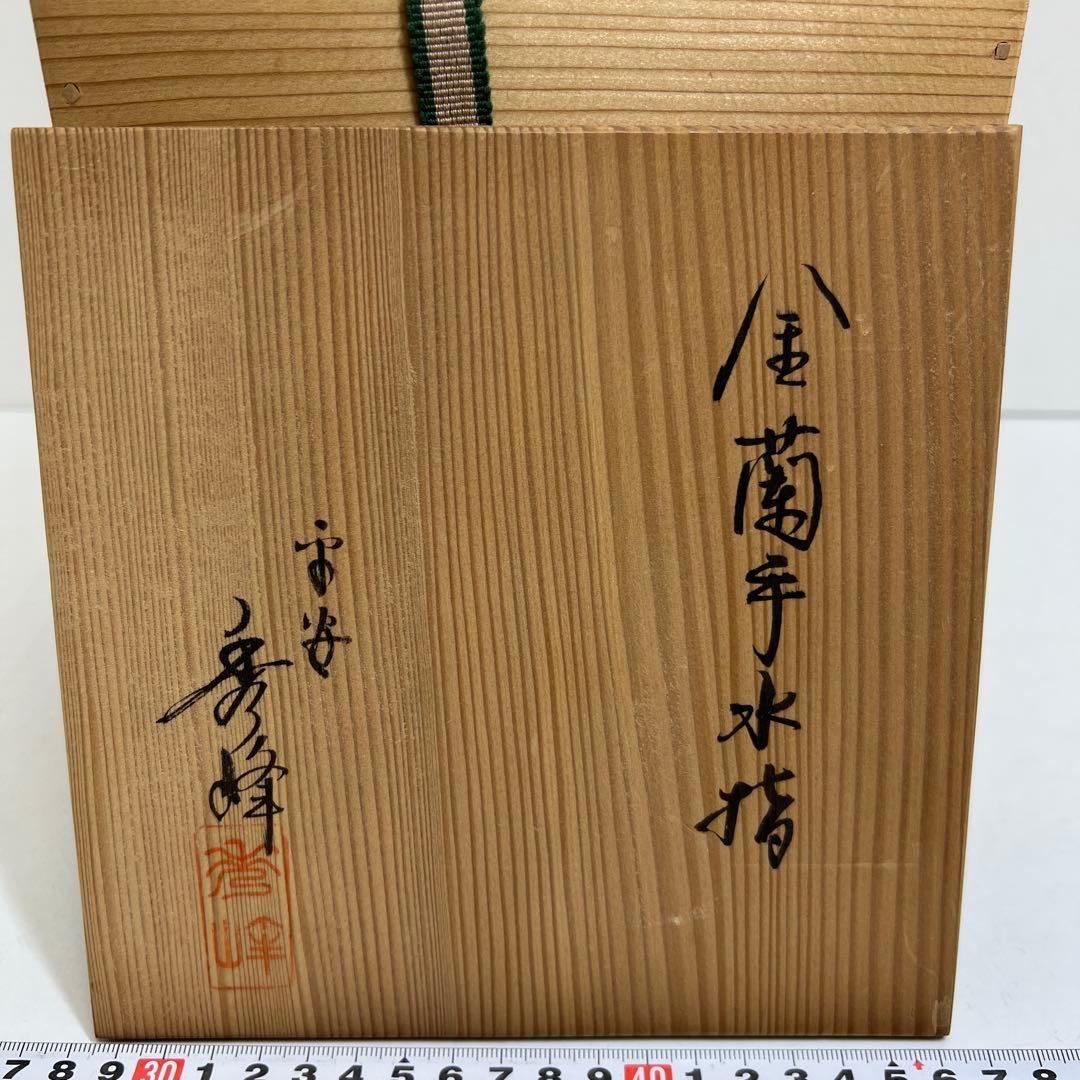 金蘭手水指
平安
秀峰
秀峰
7 8 9 30 1 2 3 4 5 6 7 8 9 40 1 2 3 4 5 6 7 8